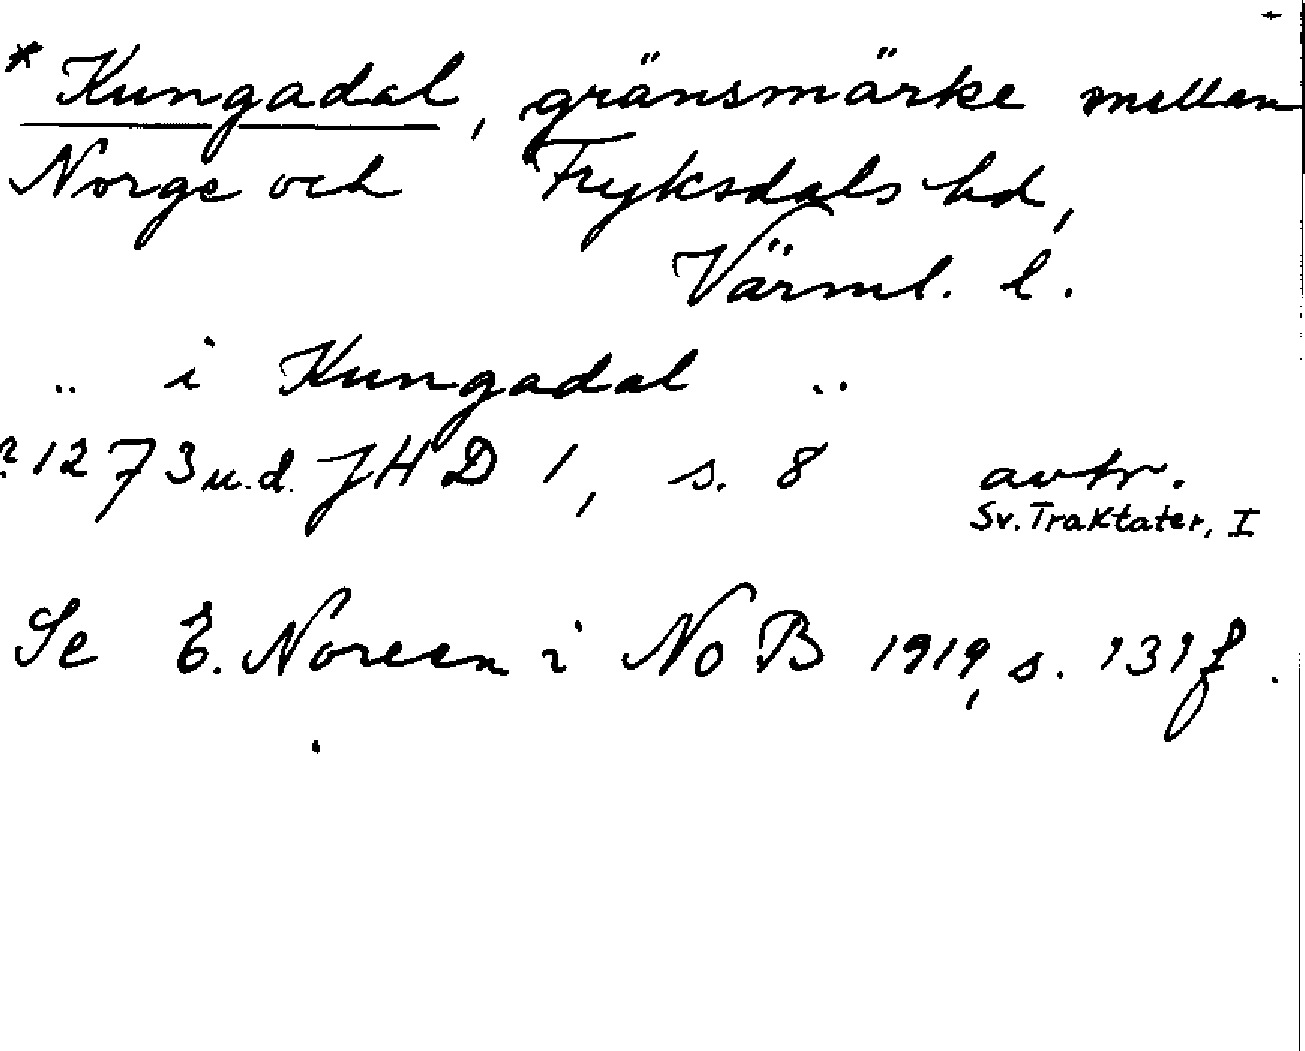 * Kungadal, gränsmärke mellan
Norge och Fryksdals hd,
Värml. l.
.. i Kungadal ..
?1273 u.d. JHD 1, s. 8 avtr.
Sv. Traktater, I
Se E. Noreen i NoB 1919, s. 131 f.